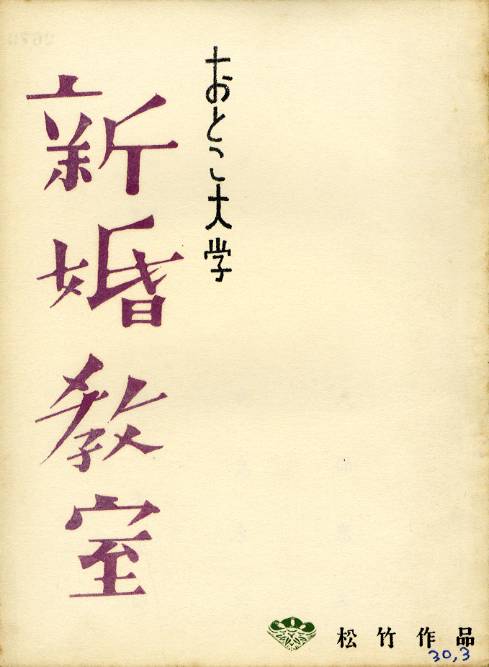 おとこ大学
新婚教室
松竹作品
30,3